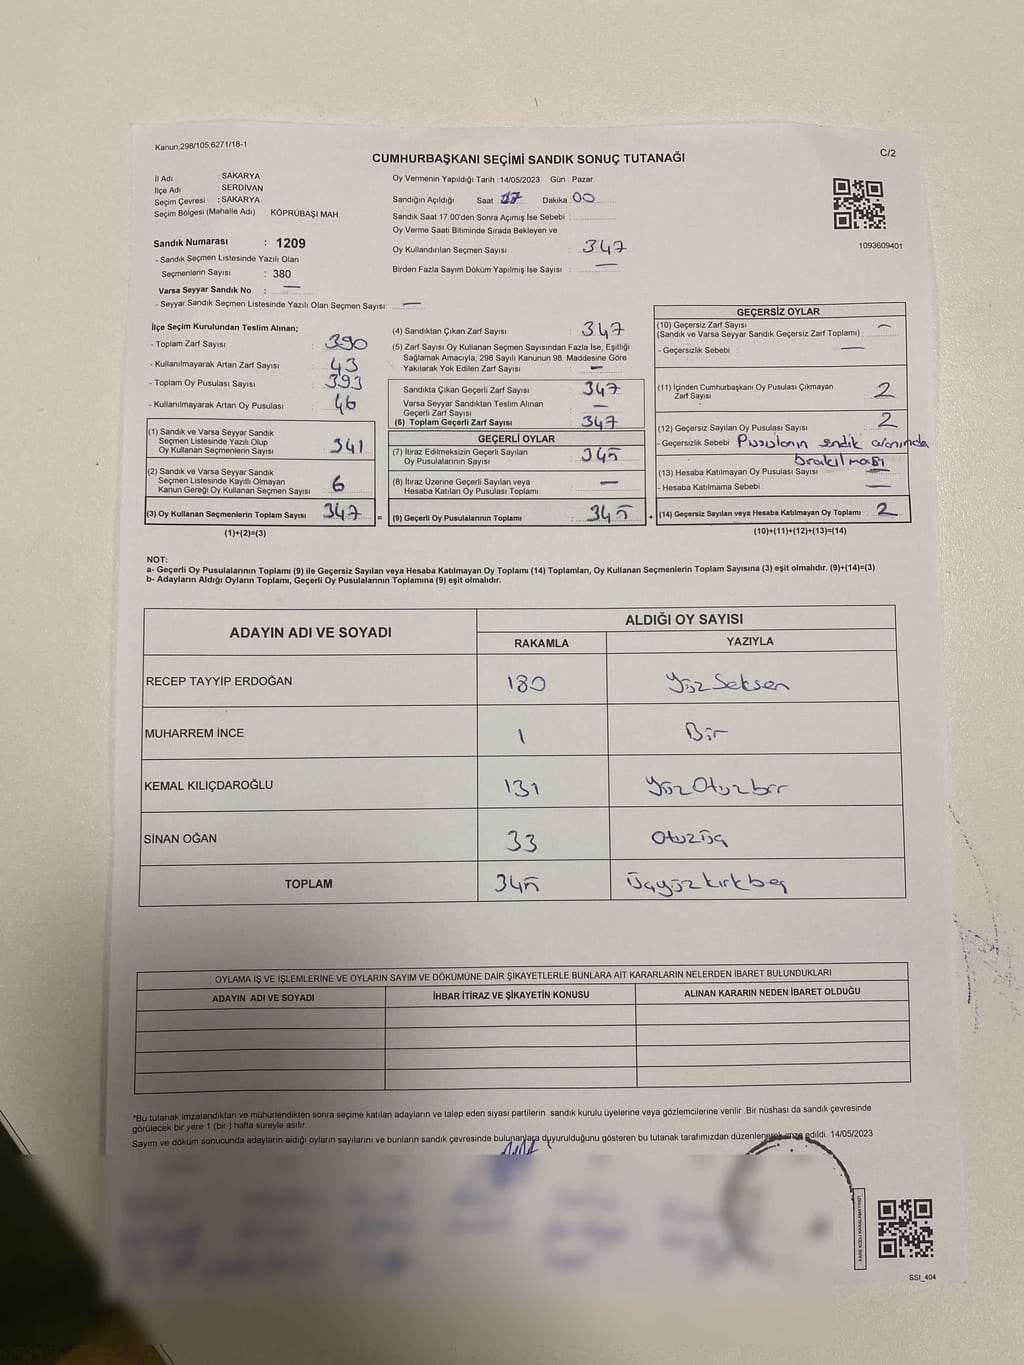 Kanun;298/105;6271/18-1
CUMHURBAŞKANI SEÇİMİ SANDIK SONUÇ TUTANAĞI
C/2
İl Adı : SAKARYA
İlçe Adı : SERDİVAN
Seçim Çevresi : SAKARYA
Seçim Bölgesi (Mahalle Adı) : KÖPRÜBAŞI MAH.
Sandık Numarası : 1209
- Sandık Seçmen Listesinde Yazılı Olan
Seçmenlerin Sayısı : 380
Varsa Seyyar Sandık No : —
- Seyyar Sandık Seçmen Listesinde Yazılı Olan Seçmen Sayısı: —
Oy Vermenin Yapıldığı Tarih :14/05/2023 Gün : Pazar
Sandığın Açıldığı Saat 17 Dakika : 00
Sandık Saat 17:00'den Sonra Açımış İse Sebebi :
Oy Verme Saati Bitiminde Sırada Bekleyen ve
Oy Kullandırılan Seçmen Sayısı : 347
Birden Fazla Sayım Döküm Yapılmış İse Sayısı : —
1093609401
İlçe Seçim Kurulundan Teslim Alınan;
- Toplam Zarf Sayısı : 390
- Kullanılmayarak Artan Zarf Sayısı : 43
- Toplam Oy Pusulası Sayısı : 393
- Kullanılmayarak Artan Oy Pusulası : 46
(1) Sandık ve Varsa Seyyar Sandık
Seçmen Listesinde Yazılı Olup
Oy Kullanan Seçmenlerin Sayısı : 341
(2) Sandık ve Varsa Seyyar Sandık
Seçmen Listesinde Kayıtlı Olmayan
Kanun Gereği Oy Kullanan Seçmen Sayısı : 6
(3) Oy Kullanan Seçmenlerin Toplam Sayısı 347 =
(1)+(2)=(3)
(4) Sandıktan Çıkan Zarf Sayısı : 347
(5) Zarf Sayısı Oy Kullanan Seçmen Sayısından Fazla İse, Eşitliği
Sağlamak Amacıyla, 298 Sayılı Kanunun 98. Maddesine Göre
Yakılarak Yok Edilen Zarf Sayısı : —
Sandıkta Çıkan Geçerli Zarf Sayısı : 347
Varsa Seyyar Sandıktan Teslim Alınan
Geçerli Zarf Sayısı : —
(6) Toplam Geçerli Zarf Sayısı : 347
GEÇERLİ OYLAR
(7) İtiraz Edilmeksizin Geçerli Sayılan
Oy Pusulalarının Sayısı : 345
(8) İtiraz Üzerine Geçerli Sayılan veya
Hesaba Katılan Oy Pusulası Toplamı : —
(9) Geçerli Oy Pusulalarının Toplamı : 345 +
GEÇERSİZ OYLAR
(10) Geçersiz Zarf Sayısı : —
(Sandık ve Varsa Seyyar Sandık Geçersiz Zarf Toplamı)
- Geçersizlik Sebebi : —
(11) İçinden Cumhurbaşkanı Oy Pusulası Çıkmayan
Zarf Sayısı : 2
(12) Geçersiz Sayılan Oy Pusulası Sayısı : 2
- Geçersizlik Sebebi : Pusulanın sandık alanında
bırakılması
(13) Hesaba Katılmayan Oy Pusulası Sayısı : —
- Hesaba Katılmama Sebebi : —
(14) Geçersiz Sayılan veya Hesaba Katılmayan Oy Toplamı : 2
(10)+(11)+(12)+(13)=(14)
NOT:
a- Geçerli Oy Pusulalarının Toplamı (9) ile Geçersiz Sayılan veya Hesaba Katılmayan Oy Toplamı (14) Toplamları, Oy Kullanan Seçmenlerin Toplam Sayısına (3) eşit olmalıdır. (9)+(14)=(3)
b- Adayların Aldığı Oyların Toplamı, Geçerli Oy Pusulalarının Toplamına (9) eşit olmalıdır.
ADAYIN ADI VE SOYADI
ALDIĞI OY SAYISI
RAKAMLA YAZIYLA
RECEP TAYYİP ERDOĞAN 180 Yüz Seksen
MUHARREM İNCE 1 Bir
KEMAL KILIÇDAROĞLU 131 Yüz Otuz bir
SİNAN OĞAN 33 Otuz üç
TOPLAM 345 Üçyüz kırk beş
OYLAMA İŞ VE İŞLEMLERİNE VE OYLARIN SAYIM VE DÖKÜMÜNE DAİR ŞİKAYETLERLE BUNLARA AİT KARARLARIN NELERDEN İBARET BULUNDUKLARI
ADAYIN ADI VE SOYADI İHBAR İTİRAZ VE ŞİKAYETİN KONUSU ALINAN KARARIN NEDEN İBARET OLDUĞU
*Bu tutanak imzalandıktan ve mühürlendikten sonra seçime katılan adayların ve talep eden siyasi partilerin sandık kurulu üyelerine veya gözlemcilerine verilir .Bir nüshası da sandık çevresinde
görülecek bir yere 1 (bir ) hafta süreyle asılır.
Sayım ve döküm sonucunda adayların aldığı oyların sayılarını ve bunların sandık çevresinde bulunanlara duyurulduğunu gösteren bu tutanak tarafımızdan düzenlenerek imza edildi. 14/05/2023
SSI_404